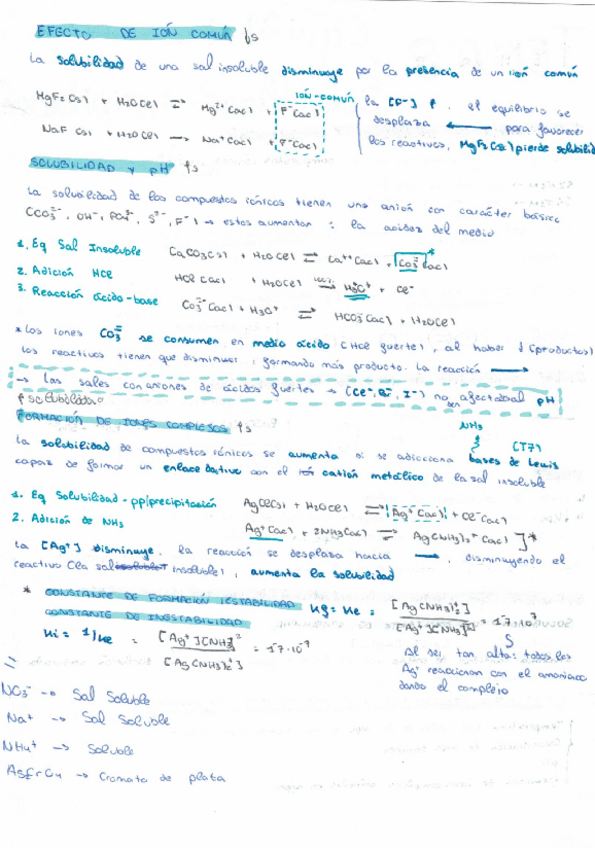 EFECTO DE IÓN COMÚN ↓s
La solubilidad de una sal insoluble disminuye por la presencia de un ion común
MgF2(s) + H2O(l) ⇌ Mg²⁺(ac) + F⁻(ac)
NaF(s) + H2O(l) → Na⁺(ac) + F⁻(ac)
IÓN-COMÚN
la [F⁻] ↑, el equilibrio se
desplaza ← para favorecer
los reactivos, MgF2(s) pierde solubilid
SOLUBILIDAD y pH ↑s
La solubilidad de los compuestos iónicos tienen una anión con carácter básico
(CO3²⁻, OH⁻, PO4³⁻, S²⁻, F⁻) → estas aumentan : la acidez del medio
1. Eq Sal Insoluble CaCO3(s) + H2O(l) ⇌ Ca²⁺(ac) + CO3²⁻(ac)
2. Adición HCl HCl(ac) + H2O(l) → H3O⁺ + Cl⁻
3. Reacción ácido-base CO3²⁻(ac) + H3O⁺ ⇌ HCO3⁻(ac) + H2O(l)
* Los iones CO3²⁻ se consumen en medio ácido (HCl fuerte), al haber ↓(productos)
los reactivos tienen que disminuir, formando más producto. La reacción →
→ Las sales con aniones de ácidos fuertes → (Cl⁻, Br⁻, I⁻) no ven afectada al pH
↑ solubilidad
FORMACIÓN DE IONES COMPLEJOS ↑s
NH3
La solubilidad de compuestos iónicos se aumenta si se adicciona bases de Lewis (T7)
capaz de formar un enlace dativo con el ión catión metálico de la sal insoluble
1. Eq Solubilidad - pp/precipitación AgCl(s) + H2O(l) ⇌ Ag⁺(ac) + Cl⁻(ac)
2. Adición de NH3 Ag⁺(ac) + 2NH3(ac) ⇌ Ag(NH3)2⁺(ac) ]*
La [Ag⁺] disminuye, la reacción se desplaza hacia →, disminuyendo el
reactivo (la sal insoluble), aumenta la solubilidad
* CONSTANTE DE FORMACIÓN (ESTABILIDAD) Kf = Ke = [Ag(NH3)2⁺] / [Ag⁺][NH3]² = 1'7·10⁷
CONSTANTE DE INESTABILIDAD
Ki = 1/Ke = [Ag⁺][NH3]² / [Ag(NH3)2⁺] = 1'7·10⁻⁷
Al ser tan alta: todos los
Ag⁺ reaccionan con el amoniaco
dando el complejo
NO3⁻ → Sal Soluble
Na⁺ → Sal Soluble
NH4⁺ → Soluble
→ Cromato de plata